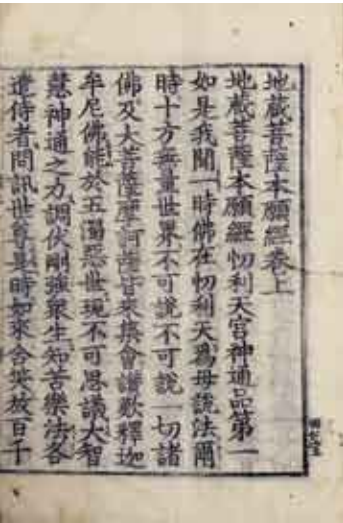 地蔵菩薩本願經卷上
地蔵菩薩本願經忉利天宮神通品第一
如是我聞一時佛在忉利天爲母說法爾
時十方無量世界不可說不可說一切諸
佛及大菩薩摩訶薩皆來集會讃歎釋迦
牟尼佛能於五濁惡世現不可思議大智
慧神通之力調伏剛強衆生知苦樂法各
遣侍者問訊世尊是時如來含笑放百千